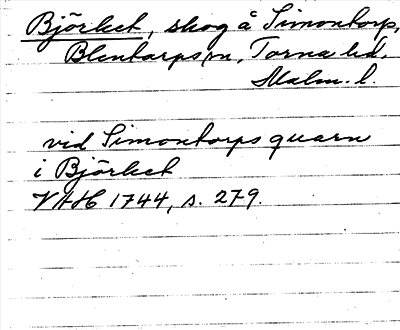 Björket, skog å Simontorp,
Blentarps sn, Torna hd.
Malm. l.
vid Simontorps quarn
i Björket
VAH 1744, s. 279.